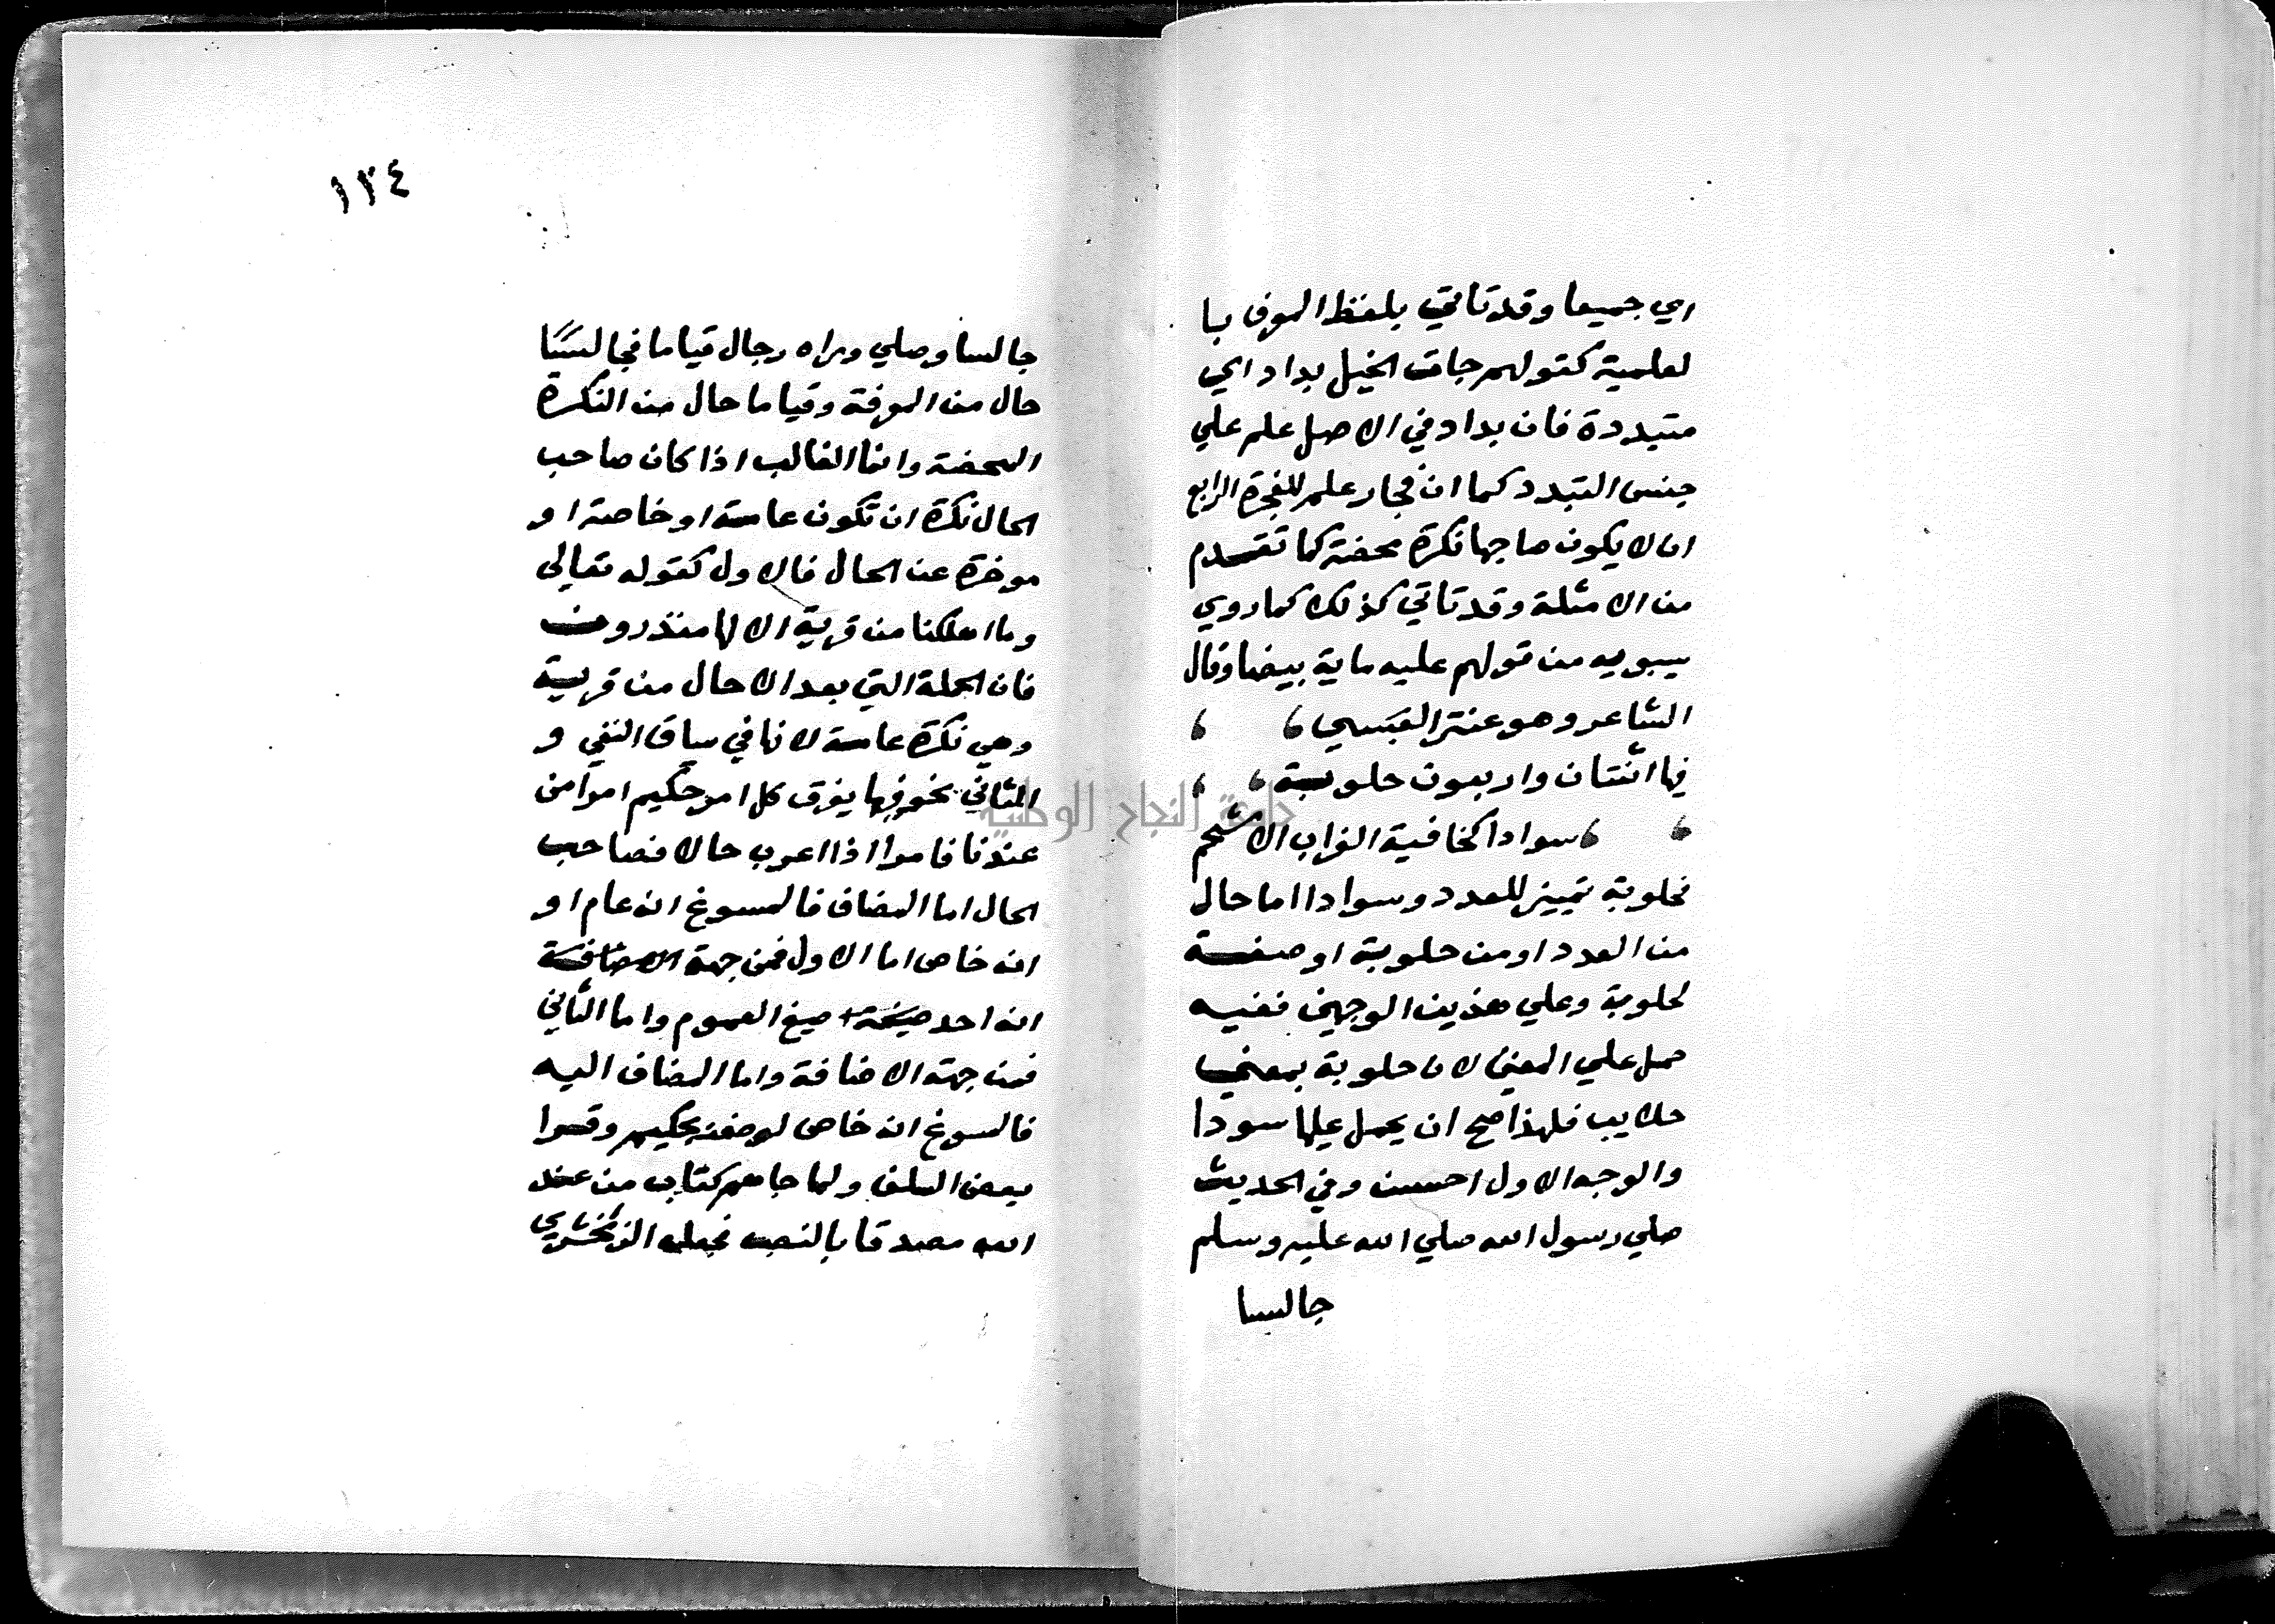 اي جميعا وقد تاتي بلفظ المعرف با
لعلمية كقولهم جات الخيل بداد اي
متبددة فان بداد في الاصل علم علي
جنس التبدد كما ان فجار علم للفجرة الرابع
ان لا يكون صاحبها نكرة محضة كما تقدم
من الامثلة وقد تاتي كذلك كما روي
سيبويه من قولهم عليه ماية بيضا وقال
الشاعر وهو عنتر العبسي
فيها اثنتان واربعون حلوبة
سوادا كخافية الغراب الاسحم
فحلوبة تمييز للعدد وسوادا اما حال
من العدد او من حلوبة او صفة
لحلوبة وعلي هذين الوجهين ففيه
حمل علي المعني لان حلوبة بمعني
حلايب فلهذا صح ان يحمل عليها سودا
والوجه الاول احسن وفي الحديث
صلي رسول الله صلي الله عليه وسلم
جالسا
١٣٤
جالسا وصلي وراه رجال قياما فجالسا
حال من المعرفة وقياما حال من النكرة
المحضة وانما الغالب اذا كان صاحب
الحال نكرة ان تكون عامة او خاصة او
موخرة عن الحال فالاول كقوله تعالي
وما اهلكنا من قرية الا لها منذرون
فان الجملة التي بعد الا حال من قرية
وهي نكرة عامة لانها في سياق النفي و
الثاني نحو فيها يفرق كل امر حكيم امرا من
عندنا فامرا اذا اعرب حالا فصاحب
الحال اما المضاف فالمسوغ انه عام او
انه خاص اما الاول فمن جهة الاضافة
انه احد صيغ العموم واما الثاني
فمن جهة الاضافة واما المضاف اليه
فالمسوغ انه خاص لوصفه بحكيم وقرا
بعض السلف ولما جاهم كتاب من عند
الله مصدقا بالنصب فجعله الزمخشري
جامعة النجاح الوطنية